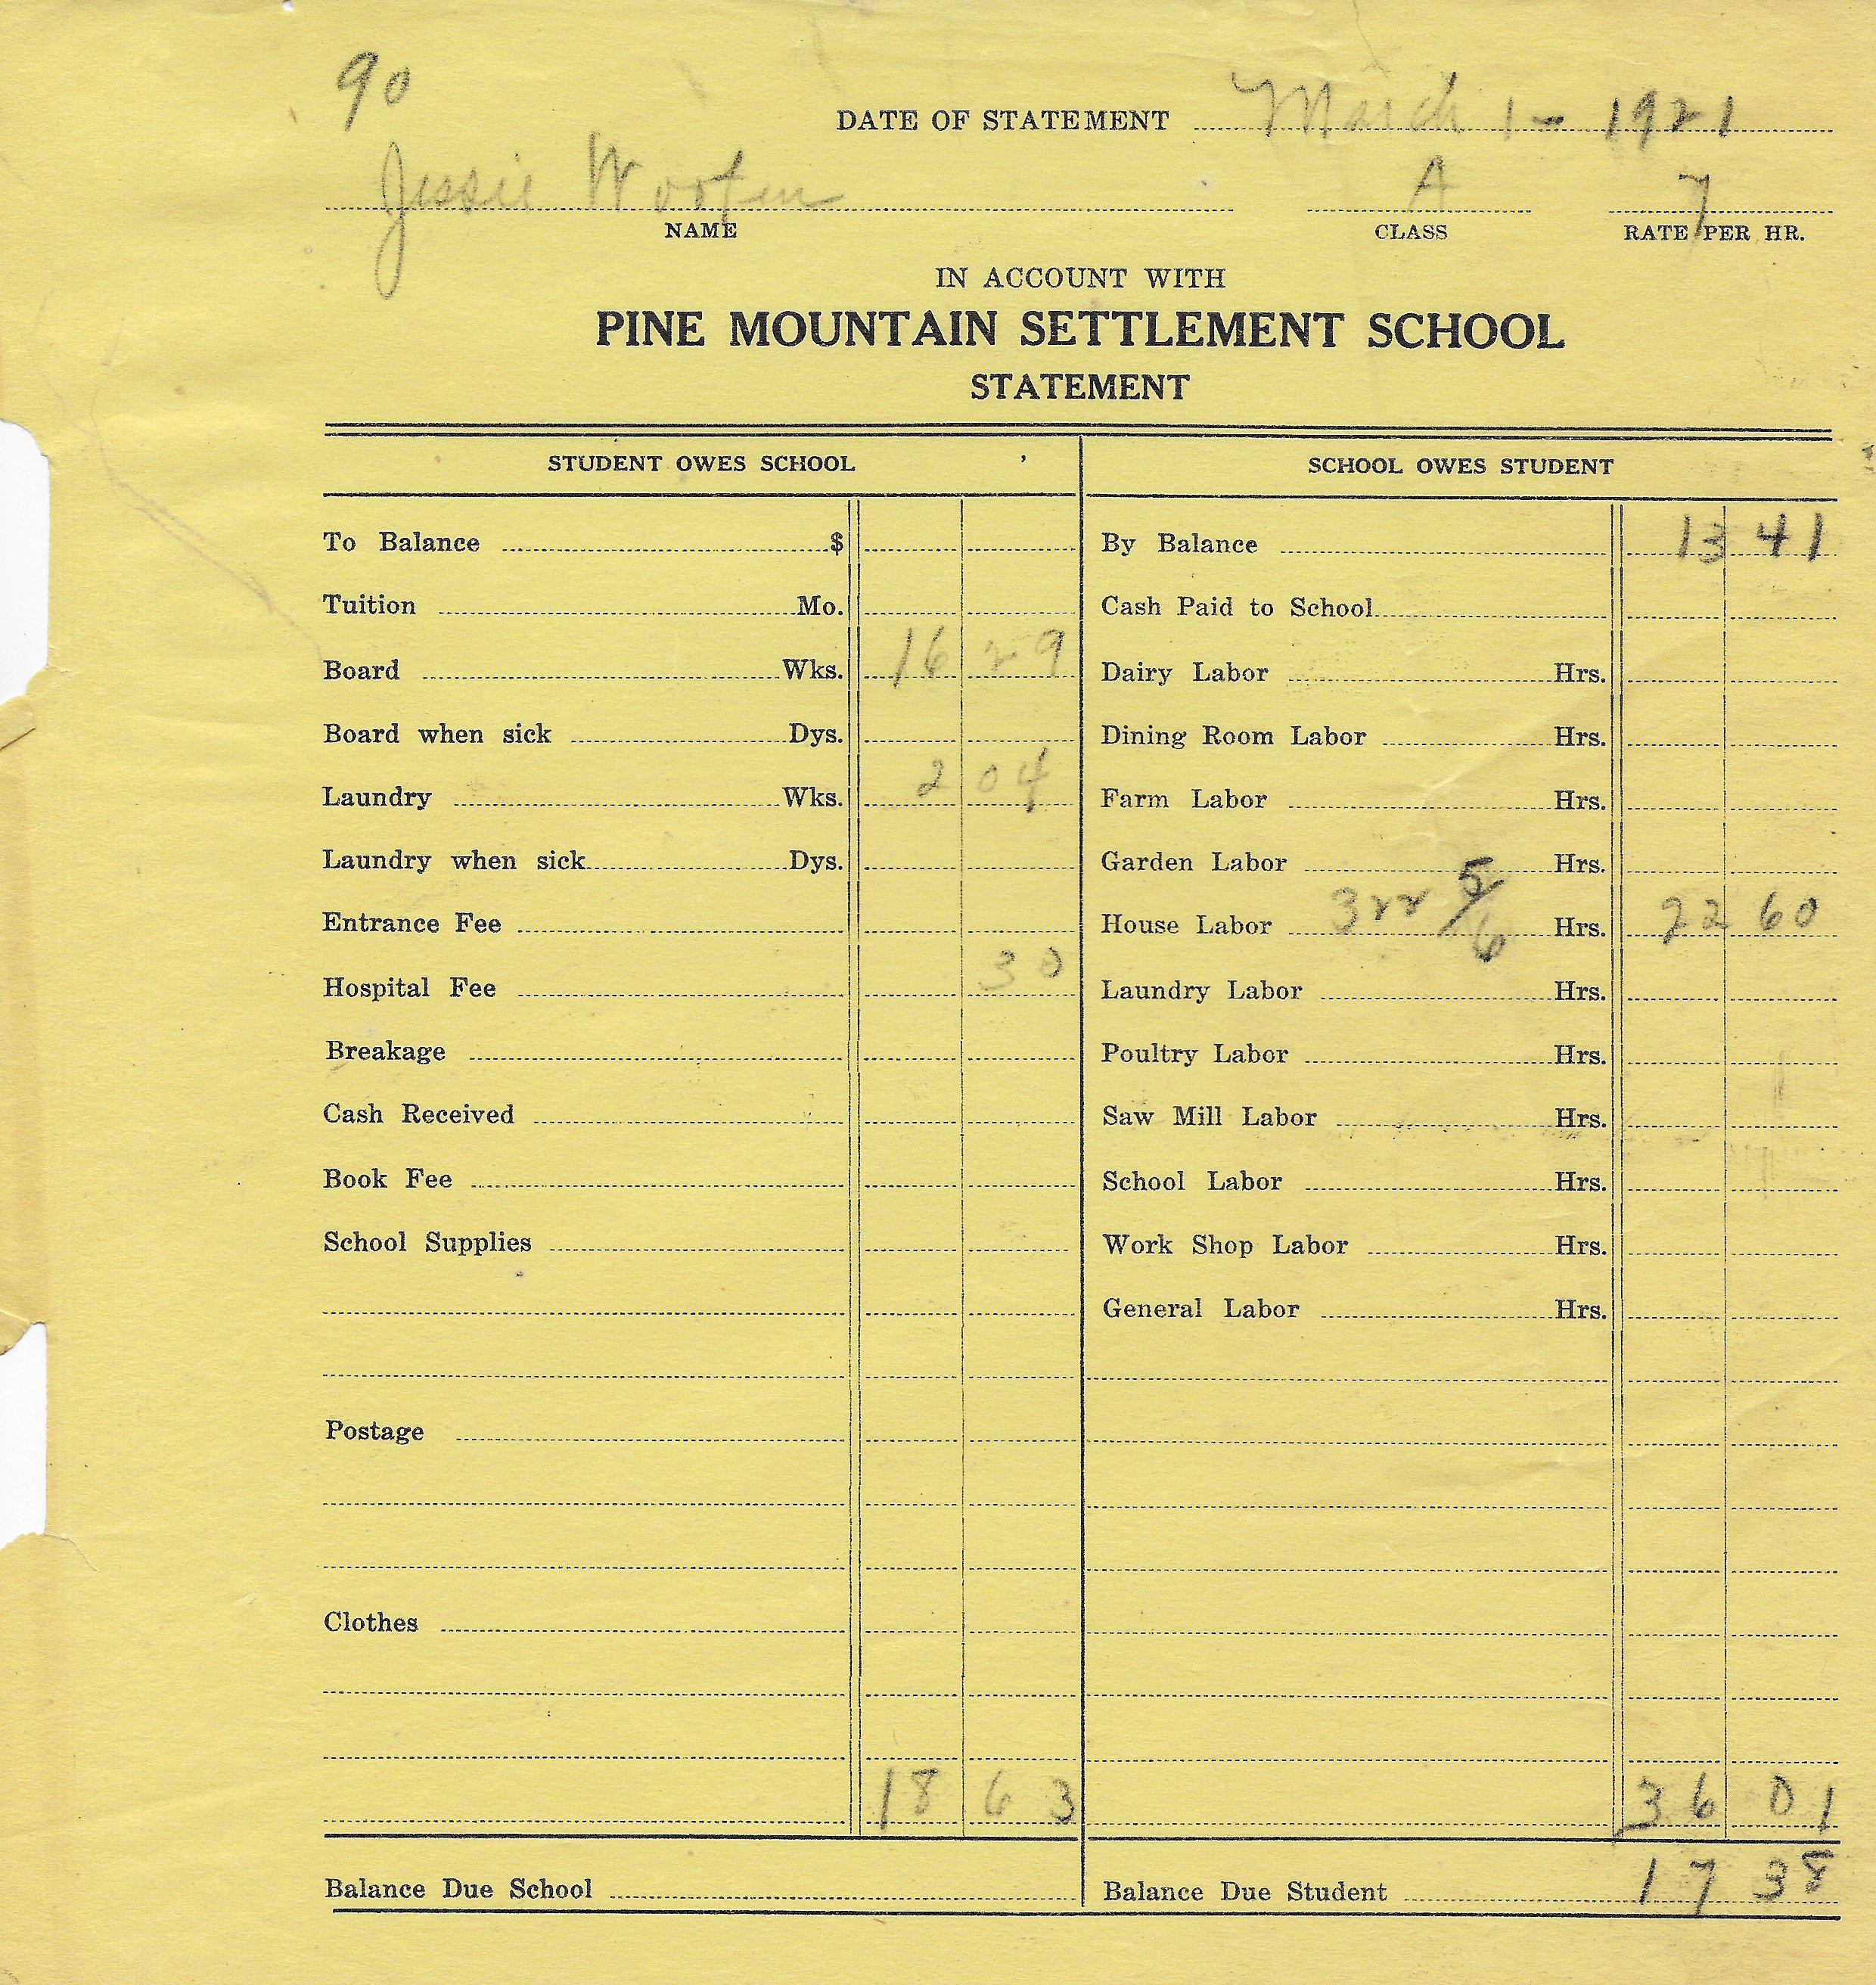 90
DATE OF STATEMENT March 1 - 1921
Jessie Wooten A 7
NAME CLASS RATE PER HR.
IN ACCOUNT WITH
PINE MOUNTAIN SETTLEMENT SCHOOL
STATEMENT
STUDENT OWES SCHOOL SCHOOL OWES STUDENT
To Balance $ By Balance 13 41
Tuition Mo. Cash Paid to School
Board Wks. 16 29 Dairy Labor Hrs.
Board when sick Dys. Dining Room Labor Hrs.
Laundry Wks. 2 04 Farm Labor Hrs.
Laundry when sick Dys. Garden Labor Hrs.
Entrance Fee House Labor 322 5/6 Hrs. 22 60
Hospital Fee 30 Laundry Labor Hrs.
Breakage Poultry Labor Hrs.
Cash Received Saw Mill Labor Hrs.
Book Fee School Labor Hrs.
School Supplies Work Shop Labor Hrs.
General Labor Hrs.
Postage
Clothes
18 63 36 01
Balance Due School Balance Due Student 17 38